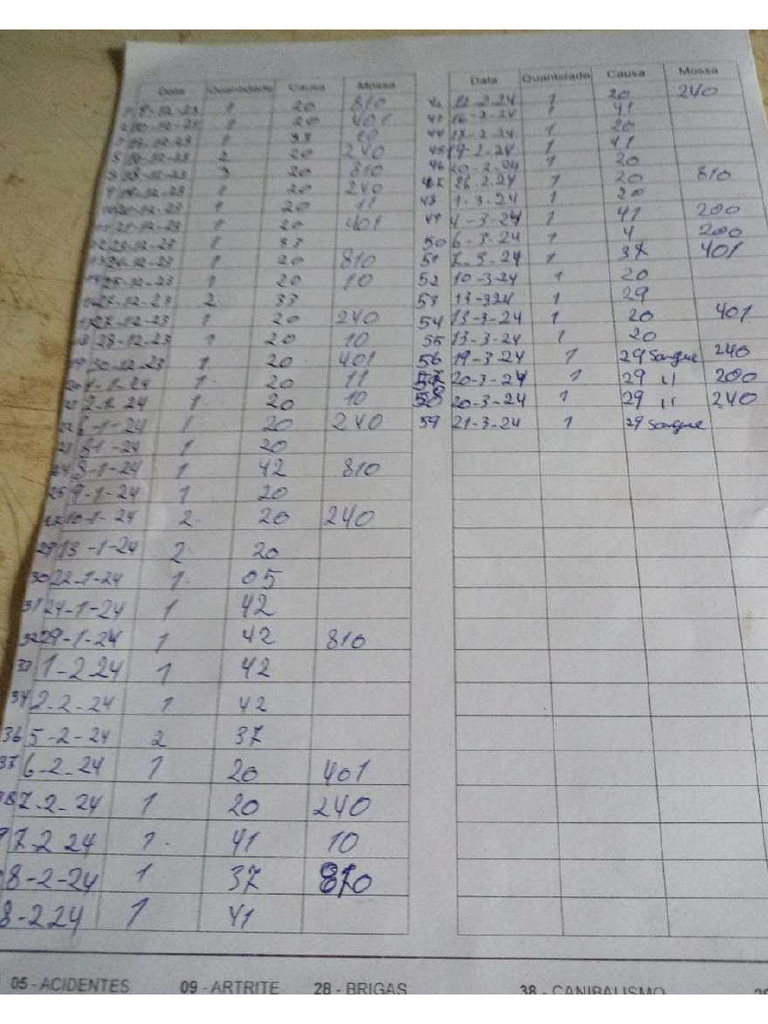 Data Quantidade Causa Mossa
8-12-23 1 20 810
10-12-23 1 20 401
1 33 10
2 20 240
3 20 810
1 20 240
20-12-23 1 20 11
21-12-23 1 20 401
23-12-23 1 33
24-12-23 1 20 810
25-12-23 1 20 10
2 33
23-12-23 1 20 240
18 28-12-23 1 20 10
19 30-12-23 1 20 401
20 1-1-24 1 20 11
21 2-1-24 1 20 10
22 1-24 1 20 240
1-24 1 20
24 5-1-24 1 42 810
25 9-1-24 1 20
27 10-1-24 2 20 240
29 13-1-24 2 20
30 22-1-24 1 05
31 24-1-24 1 42
32 29-1-24 1 42 810
33 1-2-24 1 42
34 2-2-24 1 42
36 5-2-24 2 37
37 6-2-24 1 20 401
38 7-2-24 1 20 240
7-2 24 1 41 10
8-2-24 1 37 810
8-2 24 1 41
Data Quantidade Causa Mossa
42 12-2-24 1 20 240
43 16-2-24 1 41
44 17-2-24 1 20
45 19-2-24 1 41
46 20-2-24 1 20
47 26-2-24 1 20 810
48 1-3-24 1 20
49 4-3-24 1 41 200
50 6-3-24 1 4 200
51 7-3-24 1 37 401
52 10-3-24 1 20
53 13-324 1 29
54 13-3-24 1 20 401
55 13-3-24 1 20
56 19-3-24 1 29 Sangue 240
57 20-3-24 1 29 11 200
58 20-3-24 1 29 11 240
59 21-3-24 1 29 Sangue
05 - ACIDENTES 09 - ARTRITE 28 - BRIGAS 38 - CANIBALISMO